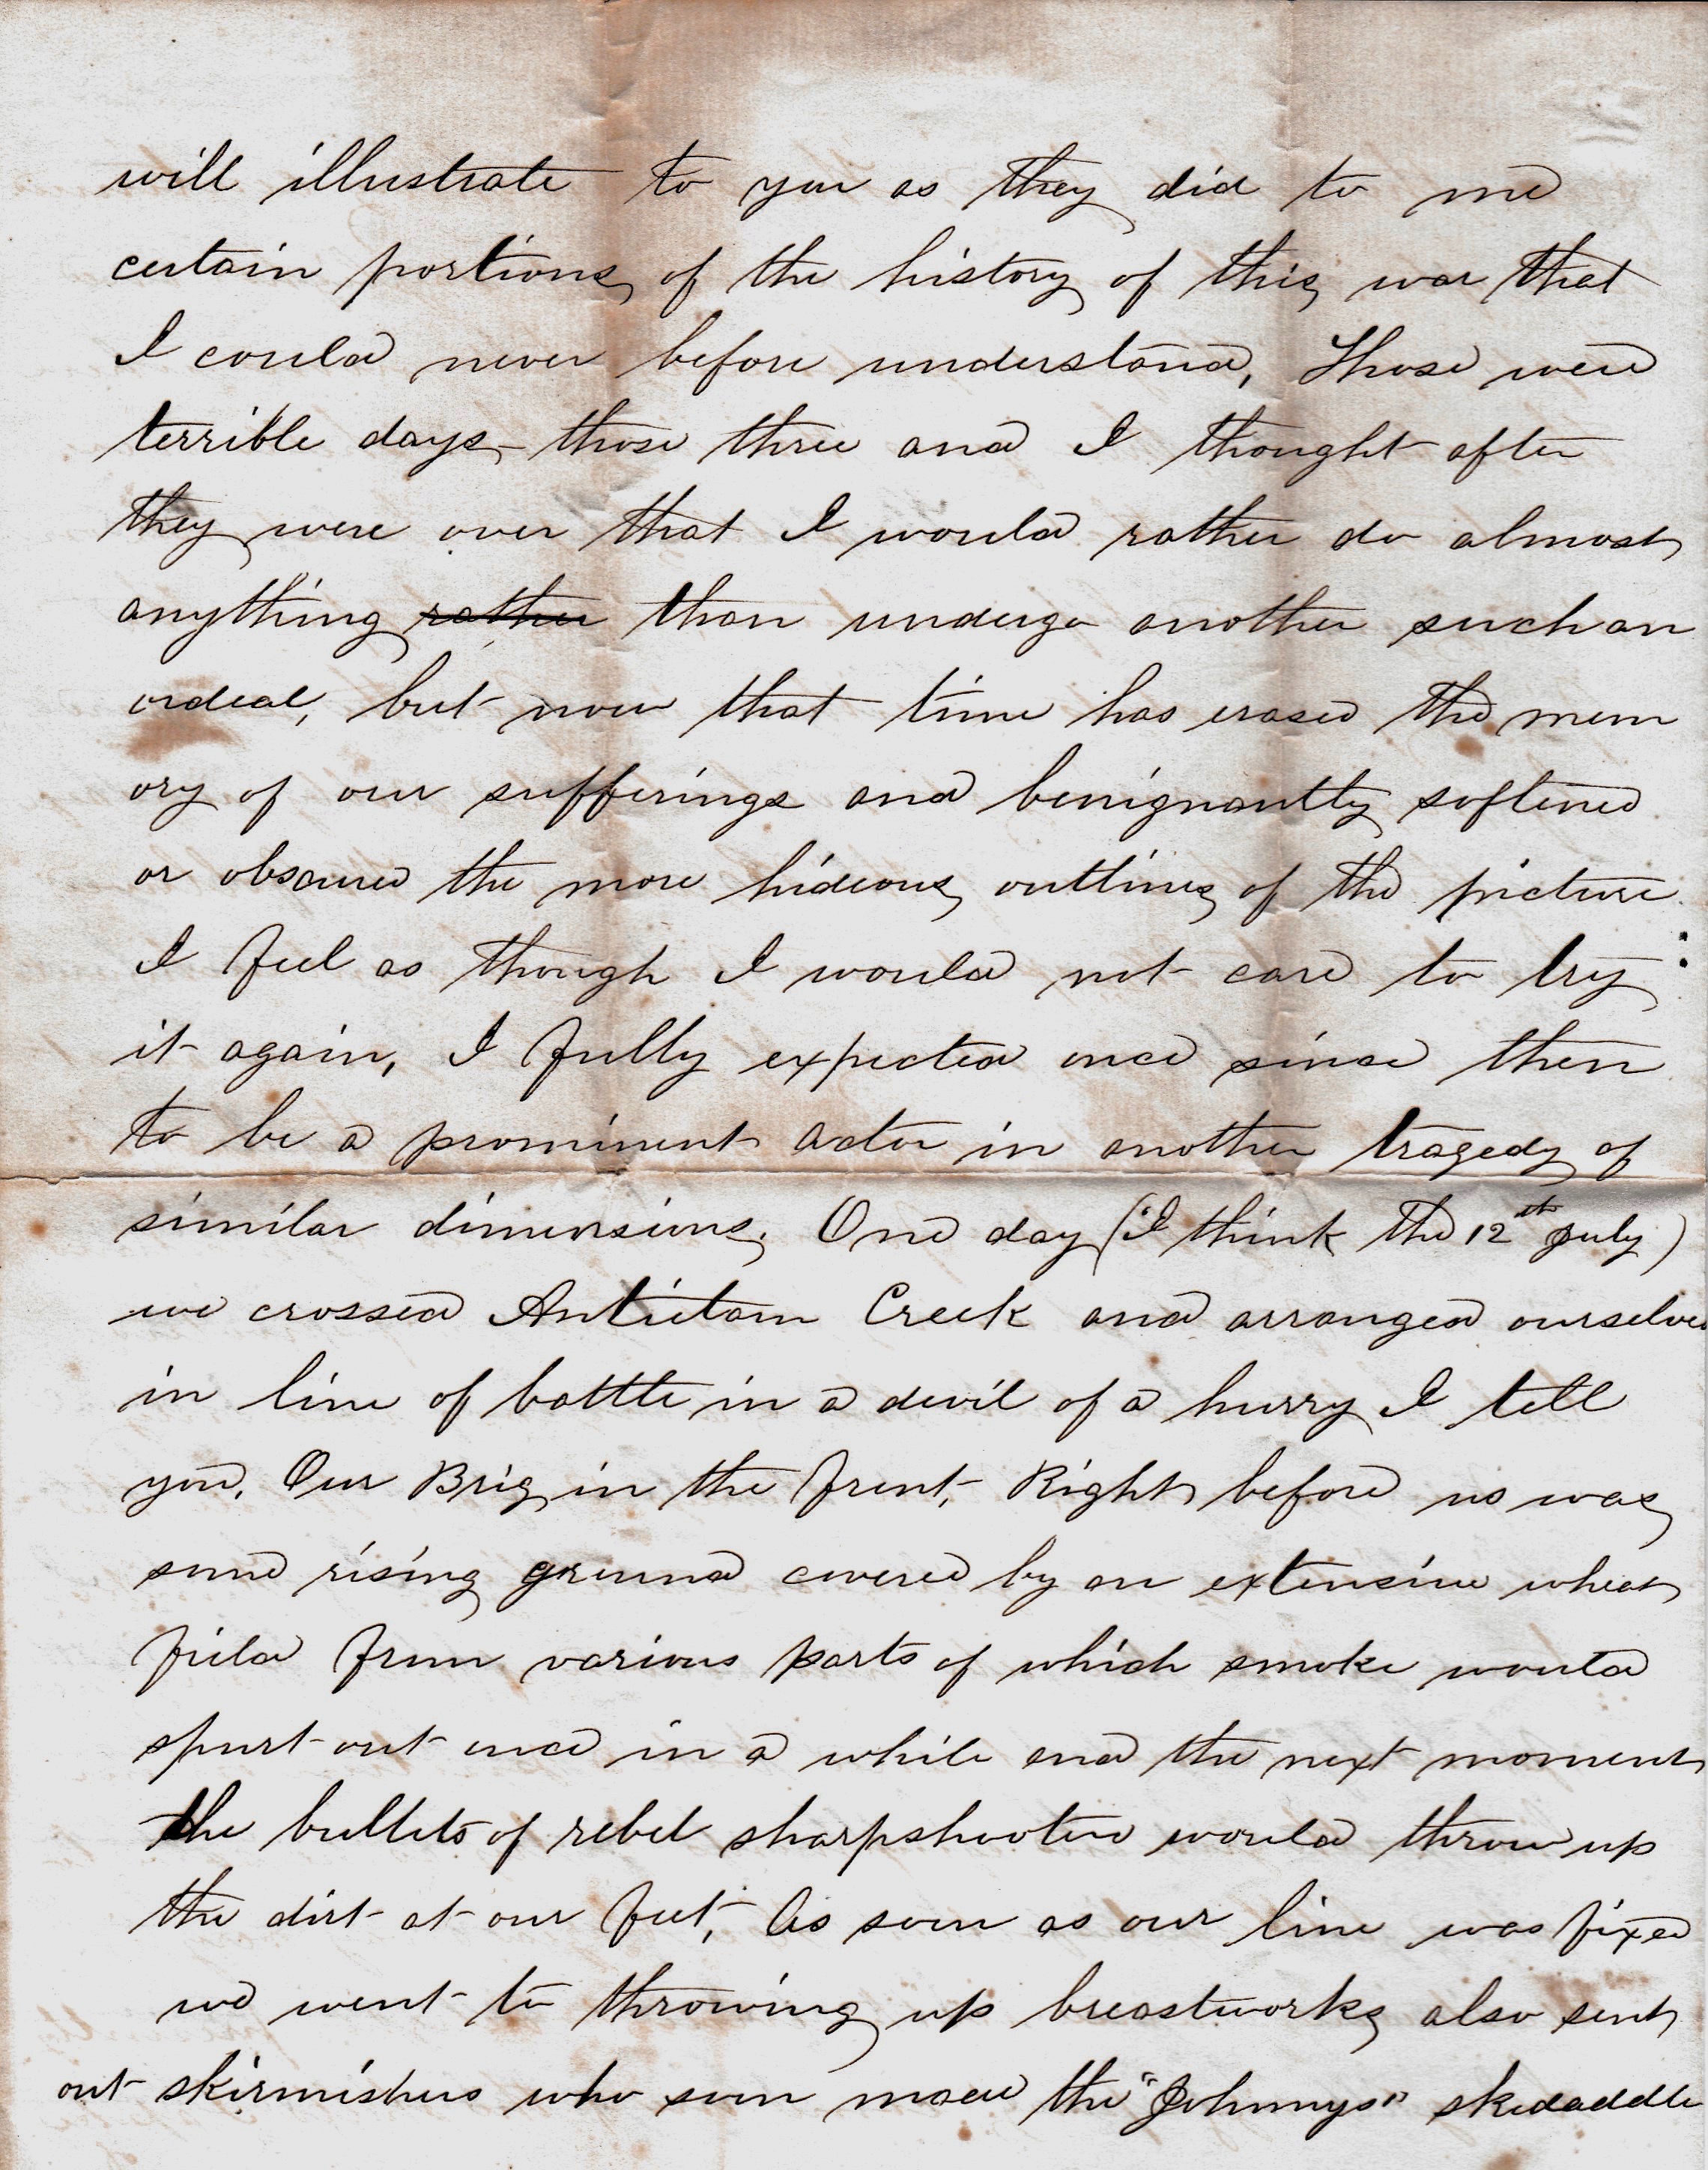 will illustrate to you as they did to me
certain portions of the history of this war that
I could never before understand, Those were
terrible days - those three and I thought after
they were over that I would rather do almost
anything rather than undergo another such an
ordeal, but now that time has erased the mem
ory of our sufferings and benignantly softened
or obscured the more hideous outlines of the picture
I feel as though I would not care to try
it again, I fully expected once since then
to be a prominent actor in another tragedy of
similar dimensions. One day (I think the 12th July)
we crossed Antietam Creek and arranged ourselves
in line of battle in a devil of a hurry I tell
you. Our Brig in the front, Right before us was
some rising ground covered by an extensive wheat
field from various parts of which smoke would
spurt out once in a while and the next moment
the bullets of rebel sharpshooters would throw up
the dirt at our feet, As soon as our line was fixed
we went to throwing up breastworks also sent
out skirmishers who soon made the "Johnnys" skedaddle